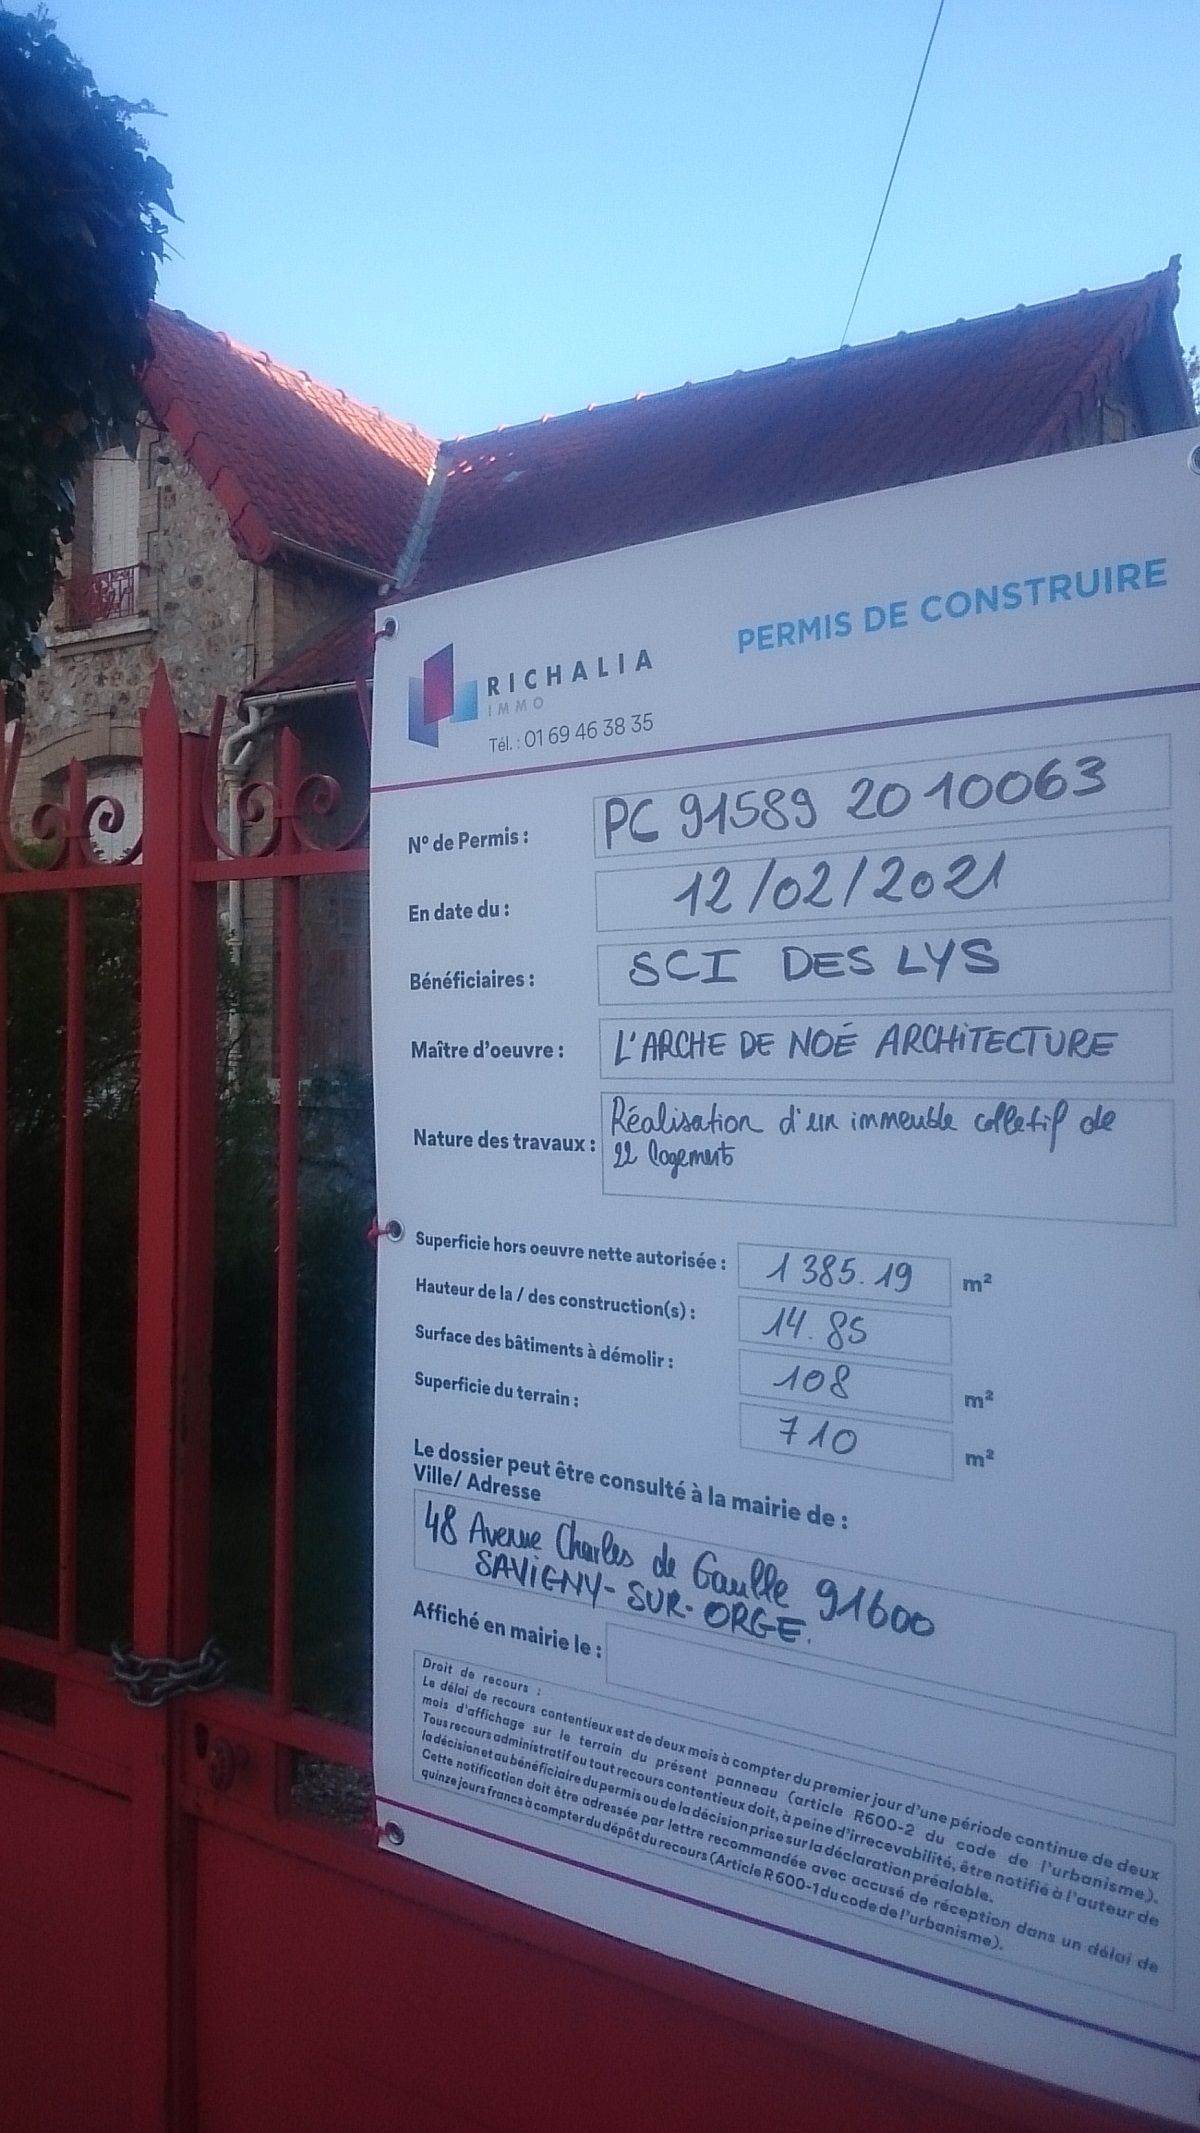 PERMIS DE CONSTRUIRE
RICHALIA
IMMO
Tél. : 01 69 46 38 35
N° de Permis : PC 91589 20 10063
En date du : 12/02/2021
Bénéficiaires : SCI DES LYS
Maître d'oeuvre : L'ARCHE DE NOÉ ARCHITECTURE
Nature des travaux : Réalisation d'un immeuble colletif de
22 logements
Superficie hors oeuvre nette autorisée : 1 385.19 m²
Hauteur de la / des construction(s) : 14.85
Surface des bâtiments à démolir : 108 m²
Superficie du terrain : 710 m²
Le dossier peut être consulté à la mairie de :
Ville/ Adresse
48 Avenue Charles de Gaulle 91600
SAVIGNY-SUR-ORGE.
Affiché en mairie le :
Droit de recours :
Le délai de recours contentieux est de deux mois à compter du premier jour d'une période continue de deux
mois d'affichage sur le terrain du présent panneau (article R600-2 du code de l'urbanisme).
Tous recours administratif ou tout recours contentieux doit, à peine d'irrecevabilité, être notifié à l'auteur de
la décision et au bénéficiaire du permis ou de la décision prise sur la déclaration préalable.
Cette notification doit être adressée par lettre recommandée avec accusé de réception dans un délai de
quinze jours francs à compter du dépôt du recours (Article R 600-1 du code de l'urbanisme).